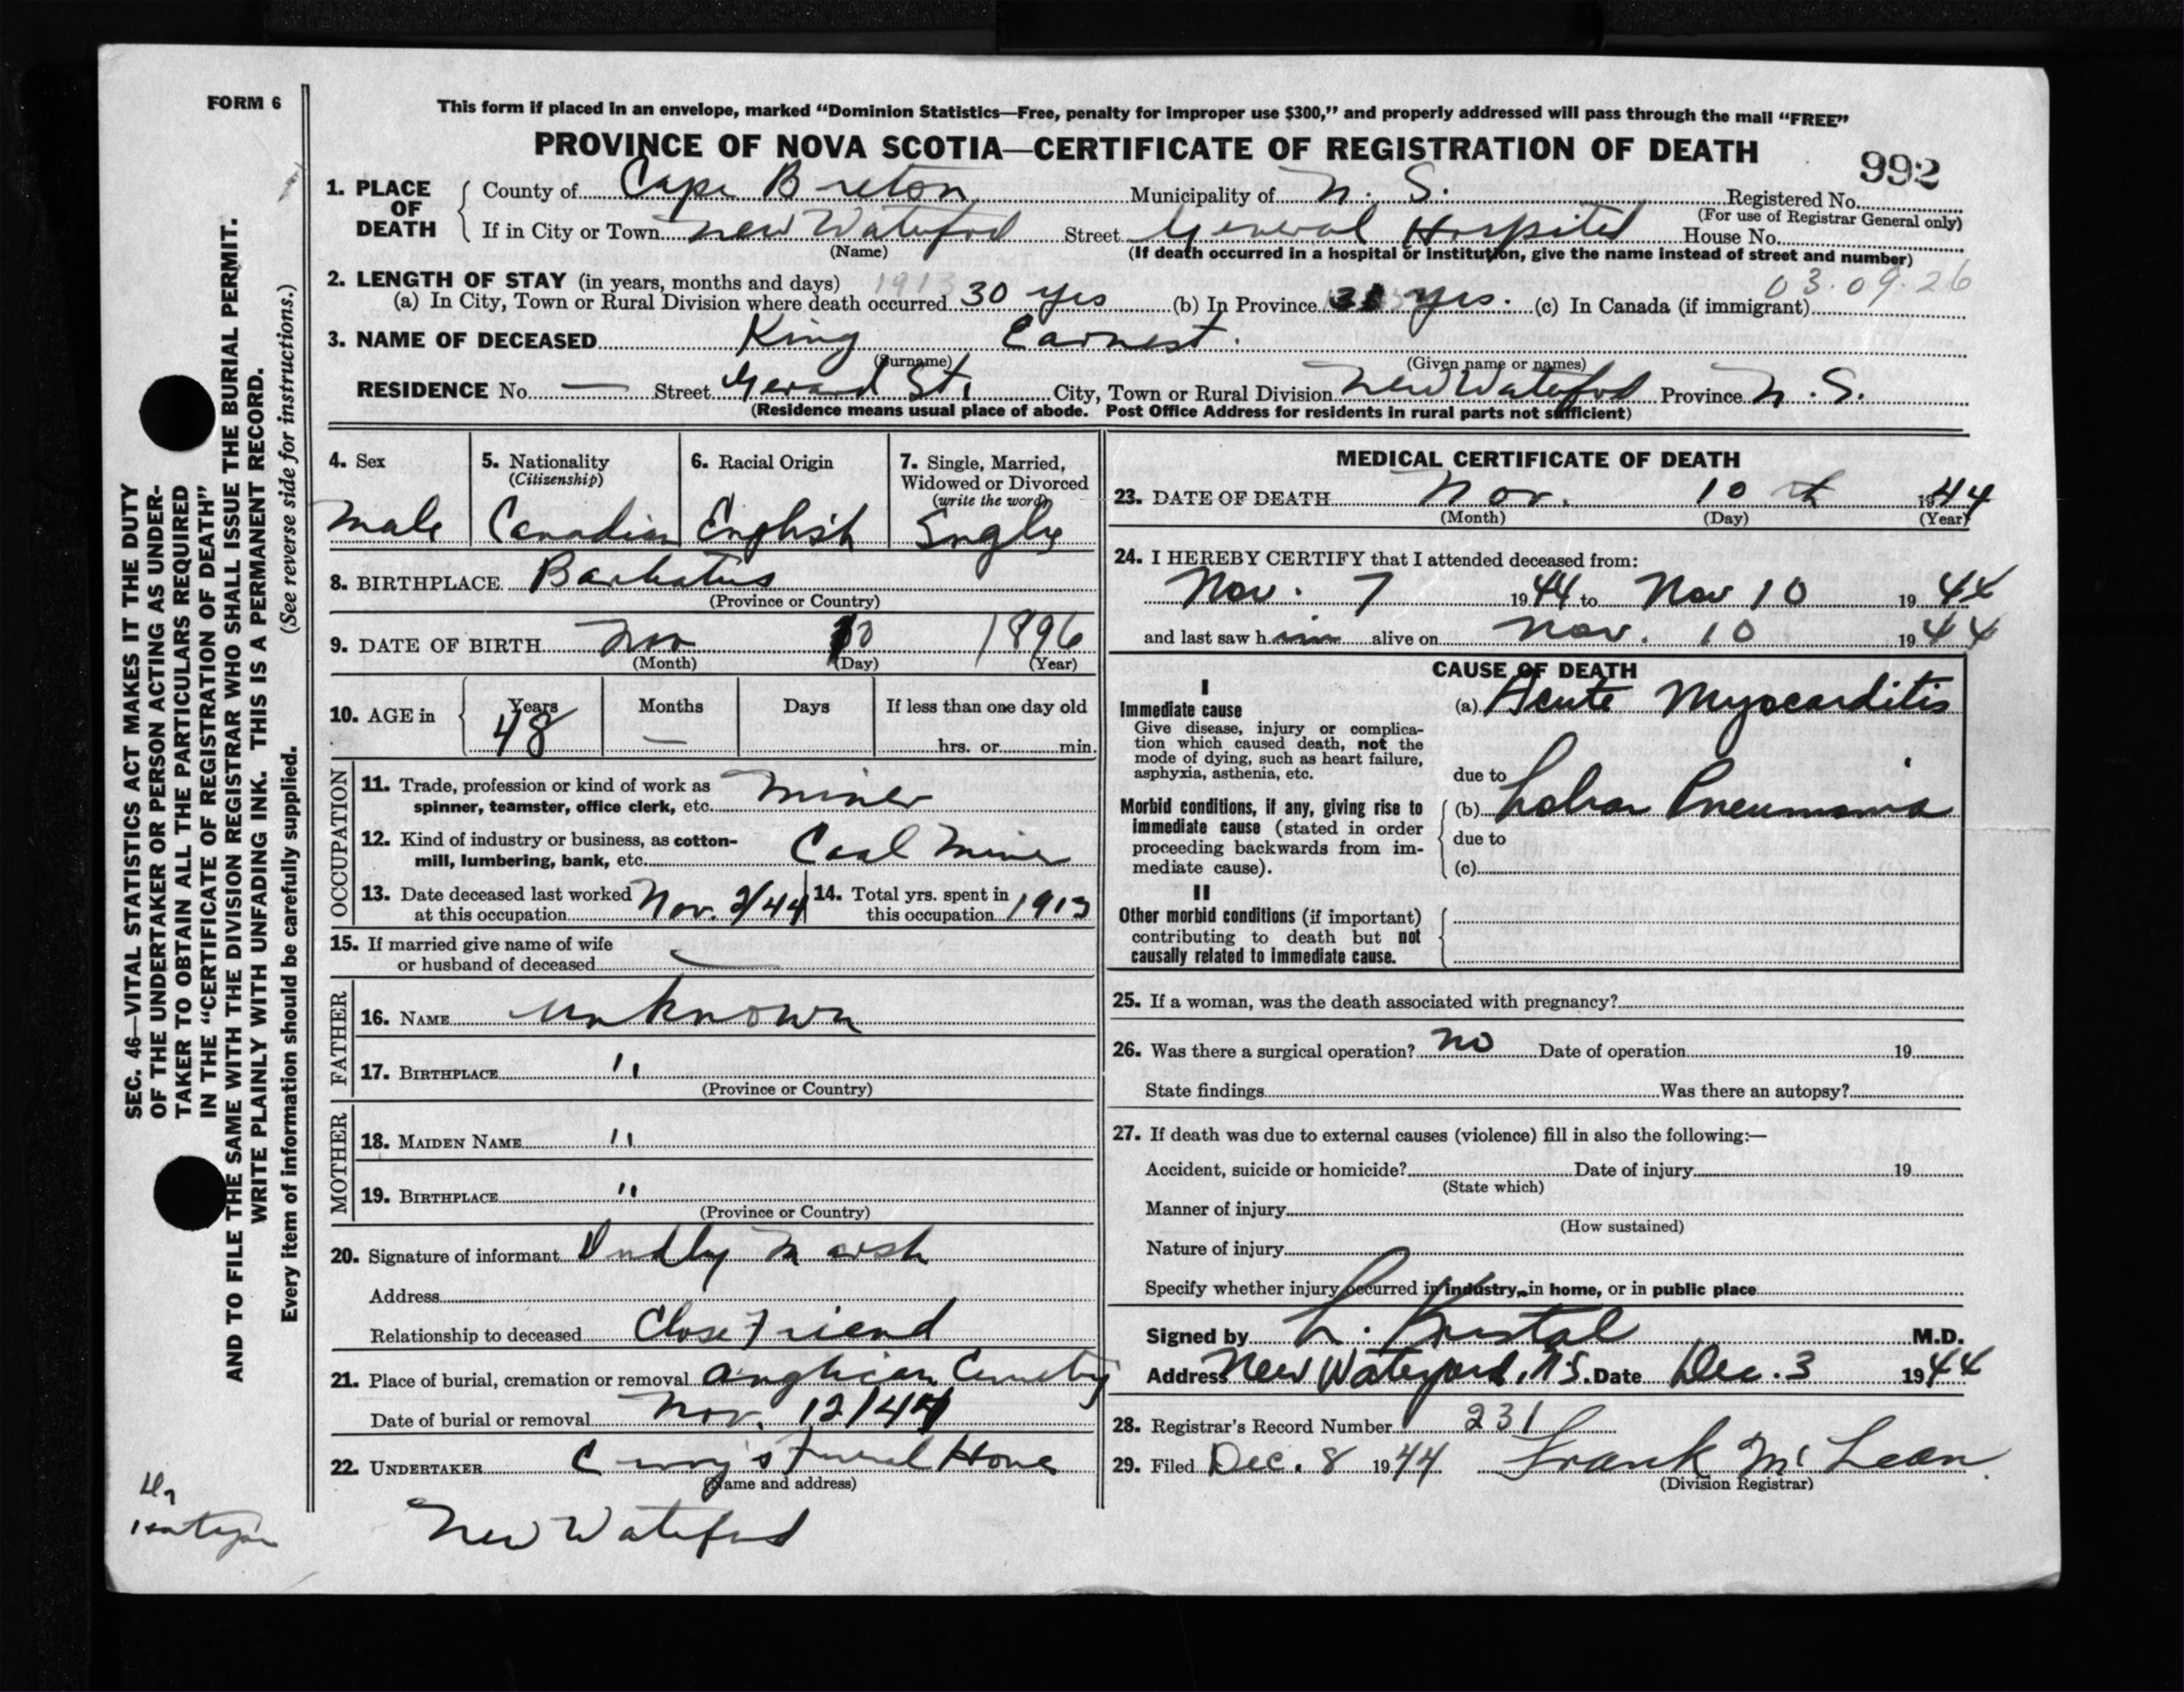 FORM 6
This form if placed in an envelope, marked "Dominion Statistics—Free, penalty for improper use $300," and properly addressed will pass through the mail "FREE"
PROVINCE OF NOVA SCOTIA—CERTIFICATE OF REGISTRATION OF DEATH
992
1. PLACE OF DEATH
County of Cape Breton Municipality of N. S. Registered No.
(For use of Registrar General only)
If in City or Town New Waterford Street General Hospital House No.
(Name) (If death occurred in a hospital or institution, give the name instead of street and number)
2. LENGTH OF STAY (in years, months and days) 1913 03.09.26
(a) In City, Town or Rural Division where death occurred 30 yes (b) In Province 31 yes. (c) In Canada (if immigrant)
3. NAME OF DECEASED King Earnest.
(Surname) (Given name or names)
RESIDENCE No. — Street Gerard St. City, Town or Rural Division New Waterford Province N. S.
(Residence means usual place of abode. Post Office Address for residents in rural parts not sufficient)
4. Sex
Male
5. Nationality
(Citizenship)
Canadian
6. Racial Origin
English
7. Single, Married,
Widowed or Divorced
(write the word)
Single
8. BIRTHPLACE
(Province or Country)
9. DATE OF BIRTH Nov 10 1896
(Month) (Day) (Year)
10. AGE in
Years Months Days If less than one day old
48 — hrs. or min.
OCCUPATION
11. Trade, profession or kind of work as
spinner, teamster, office clerk, etc. Miner
12. Kind of industry or business, as cotton-
mill, lumbering, bank, etc. Coal Miner
13. Date deceased last worked
at this occupation Nov. 2/44
14. Total yrs. spent in
this occupation 1913
15. If married give name of wife
or husband of deceased —
FATHER
16. NAME unknown
17. BIRTHPLACE "
(Province or Country)
MOTHER
18. MAIDEN NAME "
19. BIRTHPLACE "
(Province or Country)
20. Signature of informant Dudly Marsh
Address
Relationship to deceased Close Friend
21. Place of burial, cremation or removal Anglican Cemetery
Date of burial or removal Nov. 12/44
22. UNDERTAKER Curry's Funeral Home
(Name and address)
New Waterford
MEDICAL CERTIFICATE OF DEATH
23. DATE OF DEATH Nov. 10th 1944
(Month) (Day) (Year)
24. I HEREBY CERTIFY that I attended deceased from:
Nov. 7 1944 to Nov 10 1944
and last saw him alive on Nov. 10 1944
CAUSE OF DEATH
I
Immediate cause
Give disease, injury or complica-
tion which caused death, not the
mode of dying, such as heart failure,
asphyxia, asthenia, etc.
(a) Acute Myocarditis
due to
Morbid conditions, if any, giving rise to
immediate cause (stated in order
proceeding backwards from im-
mediate cause).
(b) Lobar Pneumonia
due to
(c)
II
Other morbid conditions (if important)
contributing to death but not
causally related to immediate cause.
25. If a woman, was the death associated with pregnancy?
26. Was there a surgical operation? No Date of operation 19
State findings Was there an autopsy?
27. If death was due to external causes (violence) fill in also the following:—
Accident, suicide or homicide? Date of injury 19
(State which)
Manner of injury
(How sustained)
Nature of injury
Specify whether injury occurred in industry, in home, or in public place
Signed by L. Kristal M.D.
Address New Waterford, N.S. Date Dec. 3 1944
28. Registrar's Record Number 231
29. Filed Dec. 8 1944 Frank McLean
(Division Registrar)
SEC. 46—VITAL STATISTICS ACT MAKES IT THE DUTY
OF THE UNDERTAKER OR PERSON ACTING AS UNDER-
TAKER TO OBTAIN ALL THE PARTICULARS REQUIRED
IN THE "CERTIFICATE OF REGISTRATION OF DEATH"
AND TO FILE THE SAME WITH THE DIVISION REGISTRAR WHO SHALL ISSUE THE BURIAL PERMIT.
WRITE PLAINLY WITH UNFADING INK. THIS IS A PERMANENT RECORD.
Every item of information should be carefully supplied. (See reverse side for instructions.)